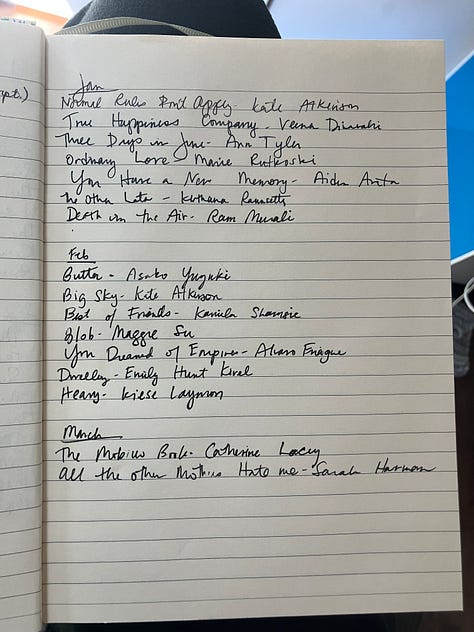 pts)
Jan
Normal Rules Don't Apply - Kate Atkinson
True Happiness Company - Veena Dinavahi
Three Days in June - Ann Tyler
Ordinary Love - Marie Rutkoski
You Have a New Memory - Aiden Arata
The Other Lata - Kirthana Ramisetti
Death in the Air - Ram Murali
Feb
Butter - Asako Yuzuki
Big Sky - Kate Atkinson
Best of Friends - Kamila Shamsie
Blob - Maggie Su
You Dreamed of Empires - Alvaro Enrigue
Dwelling - Emily Hunt Kivel
Heavy - Kiese Laymon
March
The Mobius Book - Catherine Lacey
All the other Mothers Hate me - Sarah Harman